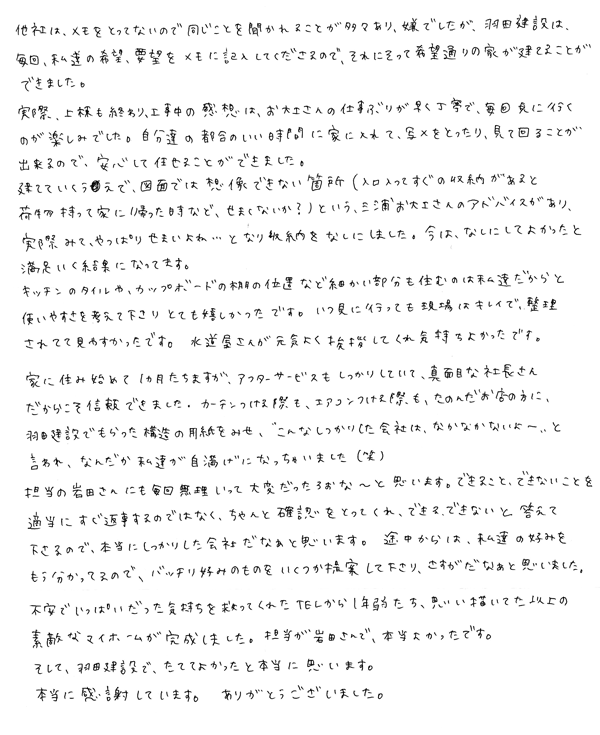 他社は、メモをとってないので同じことを聞かれることが多々あり、嫌でしたが、羽田建設は、
毎回、私達の希望、要望をメモに記入してくださるので、それにそって希望通りの家が建てることが
できました。
実際、上棟も終わり、工事中の感想は、お大工さんの仕事ぶりが早く丁寧で、毎回見に行く
のが楽しみでした。自分達の都合のいい時間に家に入れて、写メをとったり、見て回ることが
出来るので、安心して任せることができました。
建てていくうえで、図面では想像できない箇所(入口入ってすぐの収納があると
荷物持って家に帰った時など、せまくないか?)という、三浦お大工さんのアドバイスがあり、
実際みて、やっぱりせまいよね…となり収納をなしにしました。今は、なしにしてよかったと
満足いく結果になってます。
キッチンのタイルや、カップボードの棚の位置など細かい部分も住むのは私達だからと
使いやすさを考えて下さりとても嬉しかったです。いつ見に行っても現場はキレイで、整理
されてて見やすかったです。水道屋さんが元気よく挨拶してくれ気持ちよかったです。
家に住み始めて1カ月たちますが、アフターサービスもしっかりしていて、真面目な社長さん
だからこそ信頼できました。カーテンつける際も、エアコンつける際も、たのんだお店の方に、
羽田建設でもらった構造の用紙をみせ、"こんなしっかりした会社は、なかなかないよ〜"と
言われ、なんだか私達が自満げになっちゃいました(笑)
担当の岩田さんにも毎回無理いって大変だったろおな〜と思います。できること、できないことを
適当にすぐ返事するのではなく、ちゃんと確認をとってくれ、できる、できないと答えて
下さるので、本当にしっかりした会社だなぁと思います。途中からは、私達の好みを
もう分かってるので、バッチリ好みのものをいくつか提案して下さり、さすがだなぁと思いました。
不安でいっぱいだった気持ちを救ってくれたTELから1年弱たち、思い描いてた以上の
素敵なマイホームが完成しました。担当が岩田さんで、本当よかったです。
そして、羽田建設で、たててよかったと本当に思います。
本当に感謝しています。ありがとうございました。